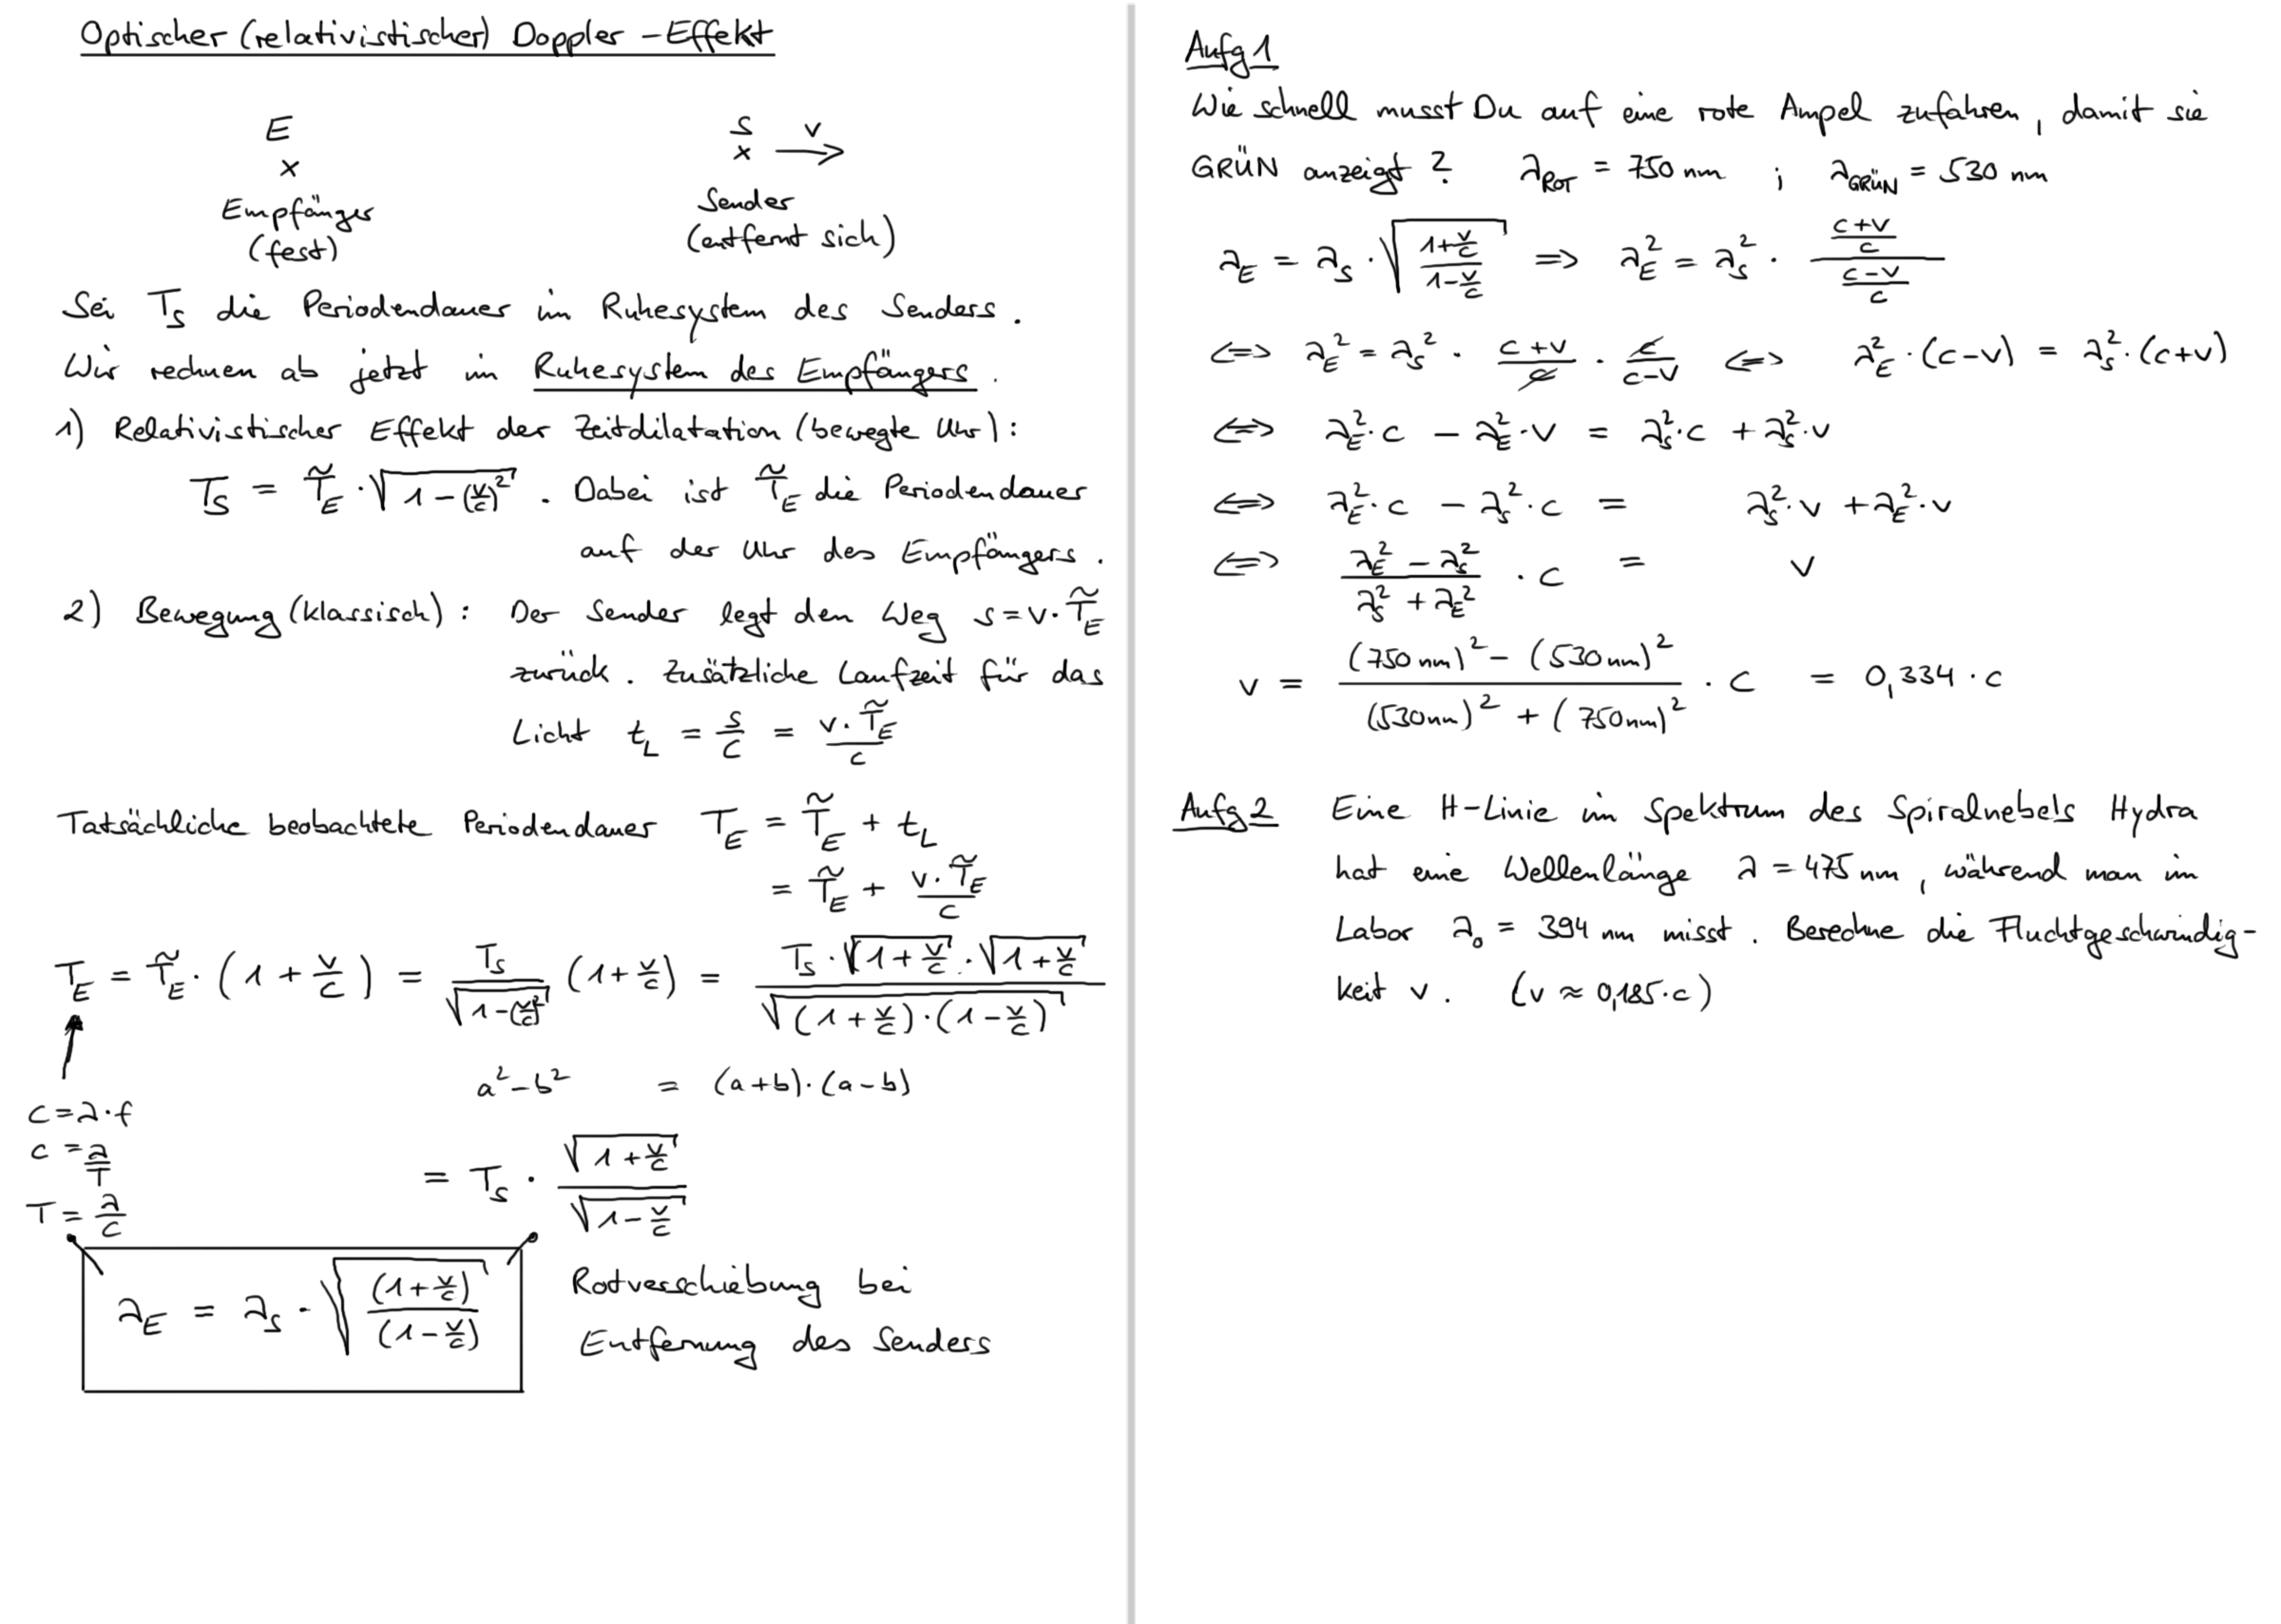 Optischer (relativistischer) Doppler-Effekt
E S v
x x →
Empfänger Sender
(fest) (entfernt sich)
Sei T_S die Periodendauer im Ruhesystem des Senders.
Wir rechnen ab jetzt im Ruhesystem des Empfängers.
1) Relativistischer Effekt der Zeitdilatation (bewegte Uhr):
T_S = T̃_E · √(1 - (v/c)²). Dabei ist T̃_E die Periodendauer
auf der Uhr des Empfängers.
2) Bewegung (klassisch): Der Sender legt den Weg s = v · T̃_E
zurück. Zusätzliche Laufzeit für das
Licht t_L = s/c = (v · T̃_E)/c
Tatsächliche beobachtete Periodendauer T_E = T̃_E + t_L
= T̃_E + (v · T̃_E)/c
T_E = T̃_E · (1 + v/c) = T_S/√(1-(v/c)²) (1 + v/c) = (T_S · √(1 + v/c) · √(1 + v/c))/√((1 + v/c) · (1 - v/c))
a² - b² = (a + b) · (a - b)
c = λ · f
c = λ/T
T = λ/c
= T_S · √(1 + v/c)/√(1 - v/c)
λ_E = λ_S · √((1 + v/c)/(1 - v/c))
Rotverschiebung bei
Entfernung des Senders
Aufg 1
Wie schnell musst Du auf eine rote Ampel zufahren, damit sie
GRÜN anzeigt? λ_ROT = 750 nm ; λ_GRÜN = 530 nm
λ_E = λ_S · √((1 + v/c)/(1 - v/c)) => λ_E² = λ_S² · ((c+v)/c)/((c-v)/c)
<=> λ_E² = λ_S² · (c+v)/c · c/(c-v) <=> λ_E² · (c-v) = λ_S² · (c+v)
<=> λ_E² · c - λ_E² · v = λ_S² · c + λ_S² · v
<=> λ_E² · c - λ_S² · c = λ_S² · v + λ_E² · v
<=> (λ_E² - λ_S²)/(λ_S² + λ_E²) · c = v
v = ((750 nm)² - (530 nm)²)/((530 nm)² + (750 nm)²) · c = 0,334 · c
Aufg 2 Eine H-Linie im Spektrum des Spiralnebels Hydra
hat eine Wellenlänge λ = 475 nm, während man im
Labor λ₀ = 394 nm misst. Berechne die Fluchtgeschwindig-
keit v. (v ≈ 0,185 · c)